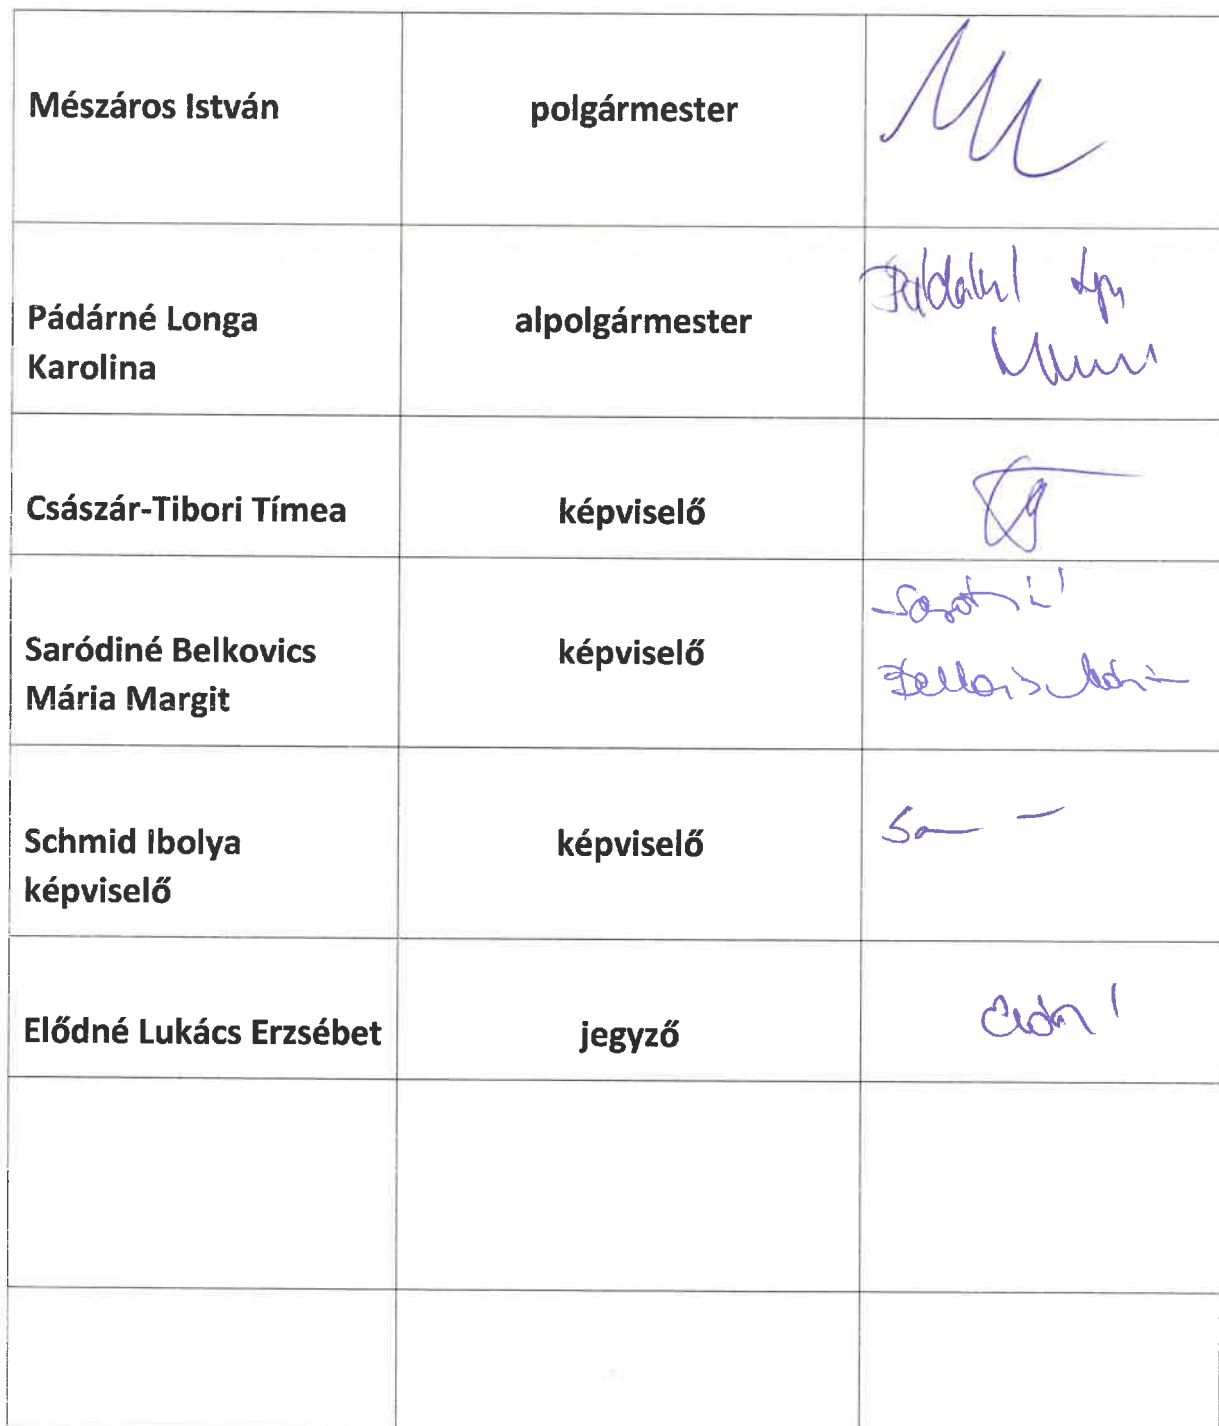 Mészáros István
polgármester
Pádárné Longa
Karolina
alpolgármester
Császár-Tibori Tímea
képviselő
Saródiné Belkovics
Mária Margit
képviselő
Schmid Ibolya
képviselő
képviselő
Elődné Lukács Erzsébet
jegyző